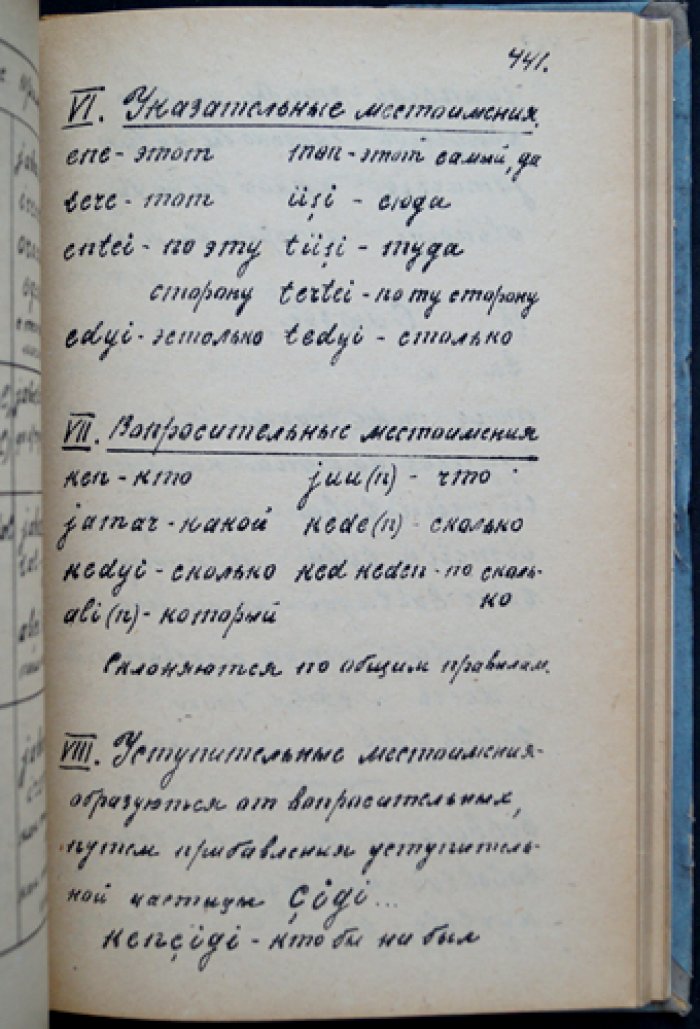 441.
VI. Указательные местоимения.
ene - этот mon - этот самый, да
tere - тот üşi - сюда
entei - по эту tüşi - туда
сторону tertei - по ту сторону
edyi - эстолько tedyi - столько
VII. Вопросительные местоимения
ken - кто juu(n) - что
jamar - какой kede(n) - сколько
kedyi - сколько ked keden - по сколь-
ali(n) - который ко
Склоняются по общим правилам.
VIII. Уступительные местоимения -
образуються от вопросительных,
путем прибавления уступитель-
ной частицы çigi...
kençigi - кто бы ни был